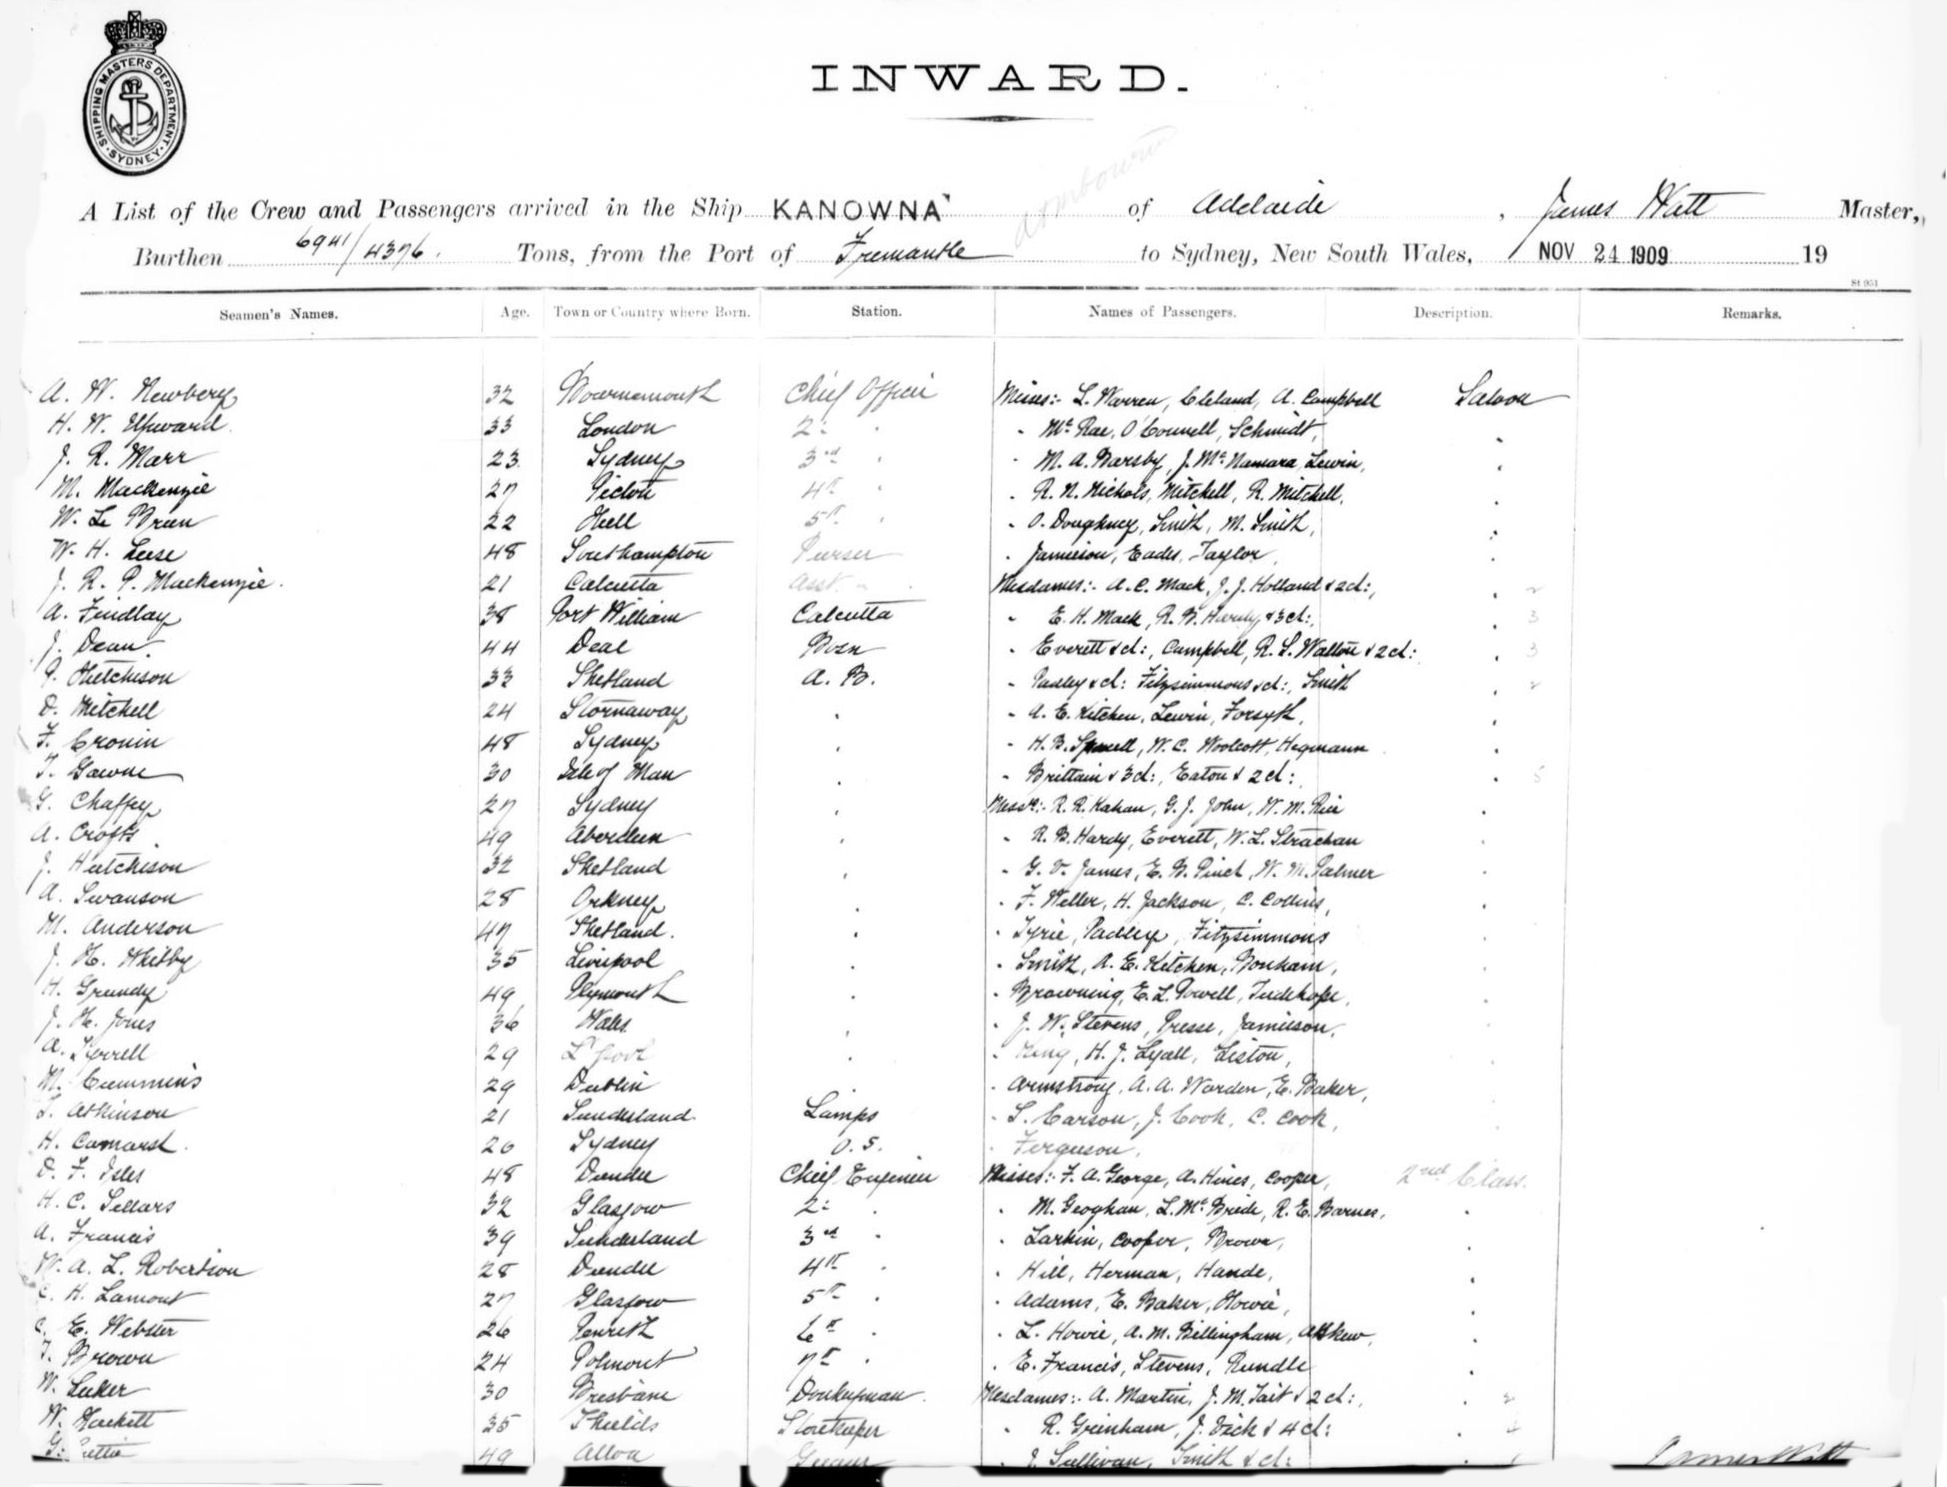 SHIPPING MASTERS DEPARTMENT. SYDNEY.
INWARD.
A List of the Crew and Passengers arrived in the Ship KANOWNA of Adelaide, James Watt Master,
Burthen 6941/4376. Tons, from the Port of Fremantle to Sydney, New South Wales, NOV 24 1909 19
St 951
Seamen's Names. Age. Town or Country where Born. Station. Names of Passengers. Description. Remarks.
A. W. Newbery 32 Bournemouth Chief Officer Misses:- L. Warren, Cleland, A. Campbell Saloon
H. W. Upward 33 London 2: " " Mc Rae, O'Connell, Schmidt,
J. R. Marr 23 Sydney 3rd " " M. A. Barsby, J. McNamara, Lewin,
M. Mackenzie 27 Picton 4th " " R. N. Nichols, Mitchell, R. Mitchell,
W. Le Breen 22 Hull 5th " " O. Doughney, Smith, M. Smith,
W. H. Leese 48 Southampton Purser " Jamieson, Eades, Taylor,
J. R. P. Mackenzie. 21 Calcutta Asst. " Mesdames:- A. C. Mack, J. J. Holland & 2 ch:, 2
A. Findlay 38 Fort William Calcutta " E. H. Mack, R. B. Hardy & 3 ch:, 3
J. Dean 44 Deal Bosn " Everett & ch:, Campbell, R. S. Walton & 2 ch: 3
P. Hutchison 33 Shetland A. B. " Padley & ch: Fitzsimmons & ch:, Smith 2
D. Mitchell 24 Stornaway " " A. E. Kitchen, Lewin, Forsyth,
F. Cronin 48 Sydney " " H. B. W. C. Woolcott, Hegmann
T. Gawne 30 Isle of Man " " Brittain & 3 ch:, Eaton & 2 ch:, 5
G. Chaffey 27 Sydney " Messrs:- R. R. Kahan, G. J. John, W. M. Rice
A. Crofts 49 Aberdeen " " R. B. Hardy, Everett, W. L. Strachan
J. Hutchison 32 Shetland " " G. V. James, E. B. Pinch, W. M. Palmer
A. Swanson 28 Orkney " " F. Weller, H. Jackson, C. Collins,
M. Anderson 47 Shetland. " " Tyrie, Padley, Fitzsimmons
J. H. Whitby 35 Liverpool " " Smith, A. E. Kitchen, Bonham,
H. Grundy 49 Plymouth " " Browning, E. L. Powell, Tudehope,
J. H. Jones 36 Wales " " J. W. Stevens, Presse, Jamieson,
A. 29 L'pool " " King, H. J. Lyall, Liston,
M. Cummins 29 Dublin " " Armstrong, A. A. Warden, E. Baker,
S. Atkinson 21 Sunderland Lamps " S. Carson, J. Cook, C. Cook,
H. 20 Sydney O. S. " Ferguson,
D. F. Isles 48 Dundee Chief Engineer Misses:- F. A. George, A. Hines, Cooper, 2nd Class.
H. C. Sellars 32 Glasgow 2: " " M. Geoghan, L. McBride, R. E. Barnes,
A. Francis 39 Sunderland 3rd " " Larkin, Cooper, Brown,
W. A. L. Robertson 28 Dundee 4th " " Hill, Herman, Hande,
C. H. Lamont 27 Glasgow 5th " " Adams, E. Baker, Howie,
C. E. Webster 26 Penrith 6th " " L. Howie, A. M. Billingham, Askew,
T. Brown 24 Polmont 7th " " E. Francis, Stevens, Rundle
W. Luker 30 Brisbane Donkeyman Mesdames:- A. Martin, J. M. Tait & 2 ch:, 2
W. Hackett 35 Shields Storekeeper " R. Greinham, J. Dick & 4 ch: 4
G. 49 Alloa Greaser " J. Sullivan, Smith & ch:
James Watt